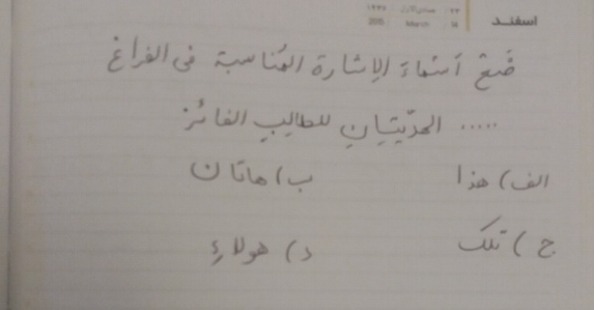 اسفند
٢٣ جمادی‌الاول ١٤٣٧
2016 March 14
ضَعْ أسْماءَ الإشارة المُناسبة فی الفراغ
..... الهدّیتانِ للطالبِ الفائز
الف) هذا ب) هاتان
ج) تلک د) هولاءِ